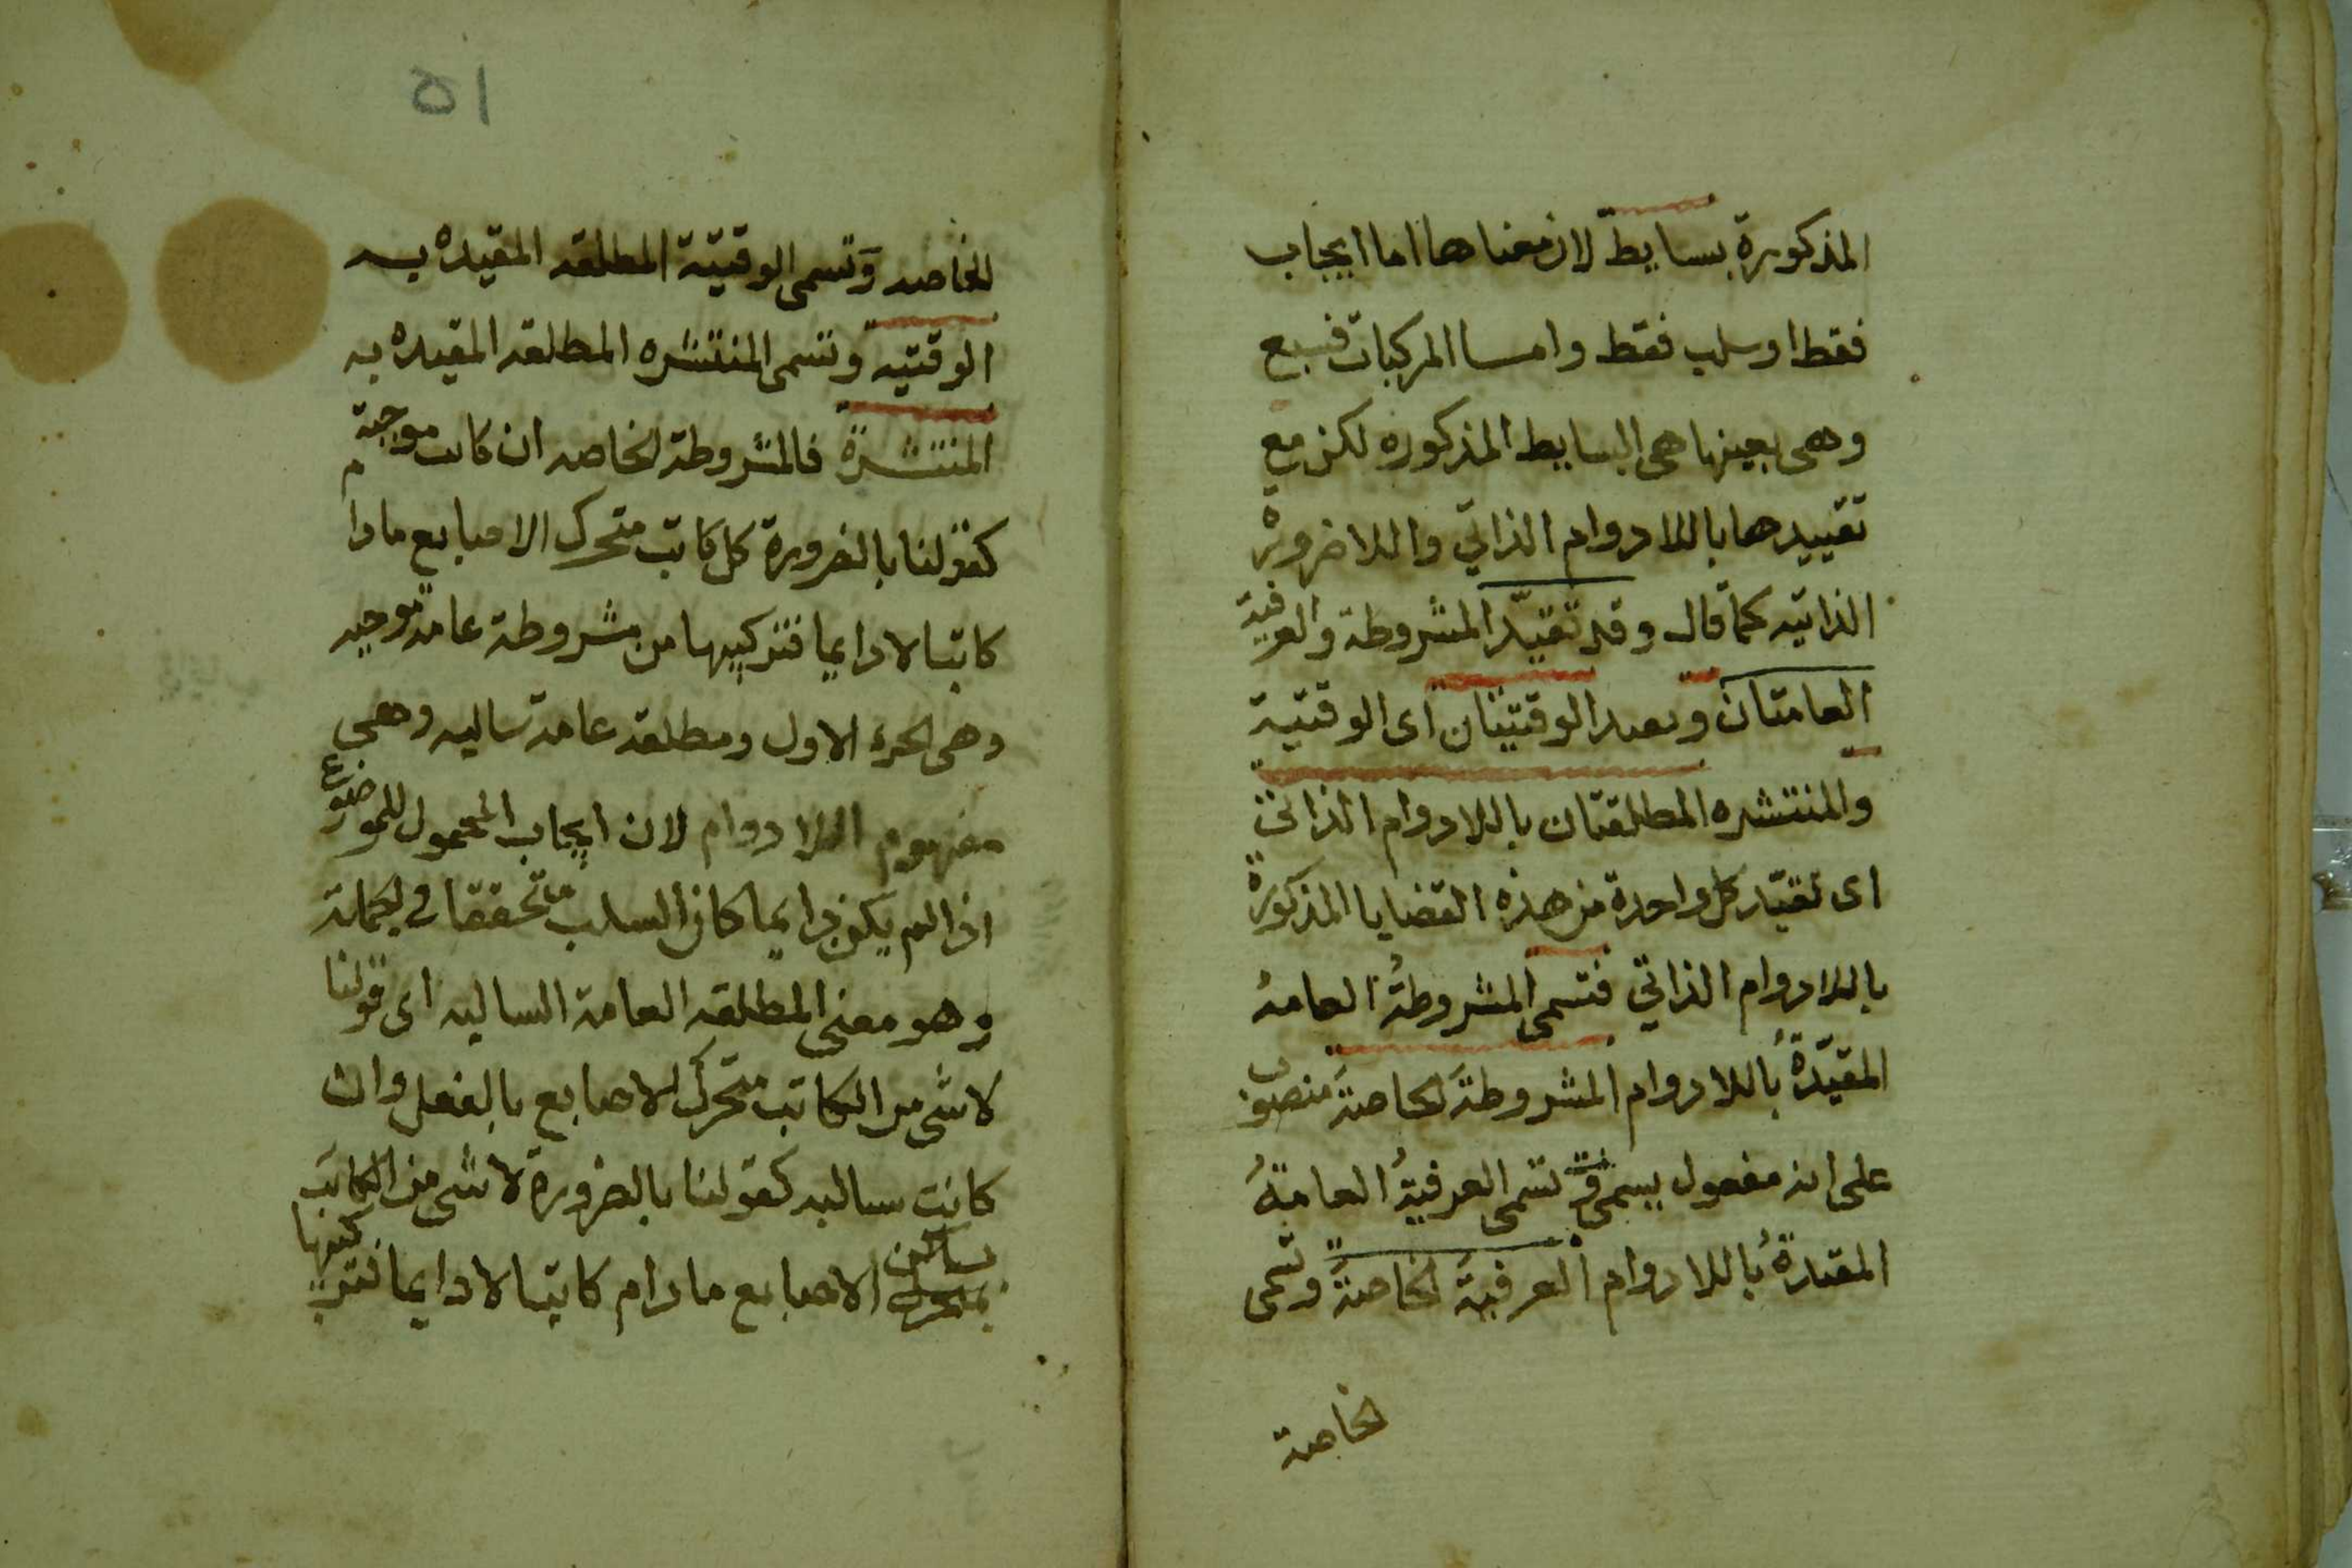 المذكورة بسايط لان معناها اما ايجاب
فقط او سلب فقط واما المركبات فسبع
وهى بعينها هى البسايط المذكوره لكن مع
تقييدها باللادوام الذاتي واللاضرورة
الذاتيه كما قال وقد تقيّد المشروطة والعرفية
العامتان وبعد الوقتيتان اى الوقتية
والمنتشره المطلقتان باللادوام الذاتى
اى تقيّد كل واحدة من هذه القضايا المذكورة
باللادوام الذاتي فتسمى المشروطةُ العامةُ
المقيّدةُ باللادوام المشروطةَ الخاصةَ منصوب
على انه مفعول يسمى وتسمى العرفيةُ العامةُ
المقيدةُ باللادوام العرفيةَ الخاصةَ وتسمى
الخاصة
٥١
الخاصه وتسمى الوقتية المطلقه المقيده به
الوقتيه وتسمى المنتشره المطلقه المقيده به
المنتشرة فالمشروطة الخاصه ان كانت موجبة
كقولنا بالضرورة كل كاتب متحرك الاصابع مادام
كاتبا لا دايما فتركيبها من مشروطة عامة موجبه
وهى الجزء الاول ومطلقه عامة سالبه وهى
مفهوم اللادوام لان ايجاب المحمول للموضوع
اذا لم يكن دايما كان السلب متحققا في الجملة
وهو معنى المطلقه العامة السالبه اى قولنا
لا شى من الكاتب متحرك الاصابع بالفعل وان
كانت سالبه كقولنا بالضرورة لا شى من الكاتب
بساكن الاصابع مادام كاتبا لا دايما فتركيبها